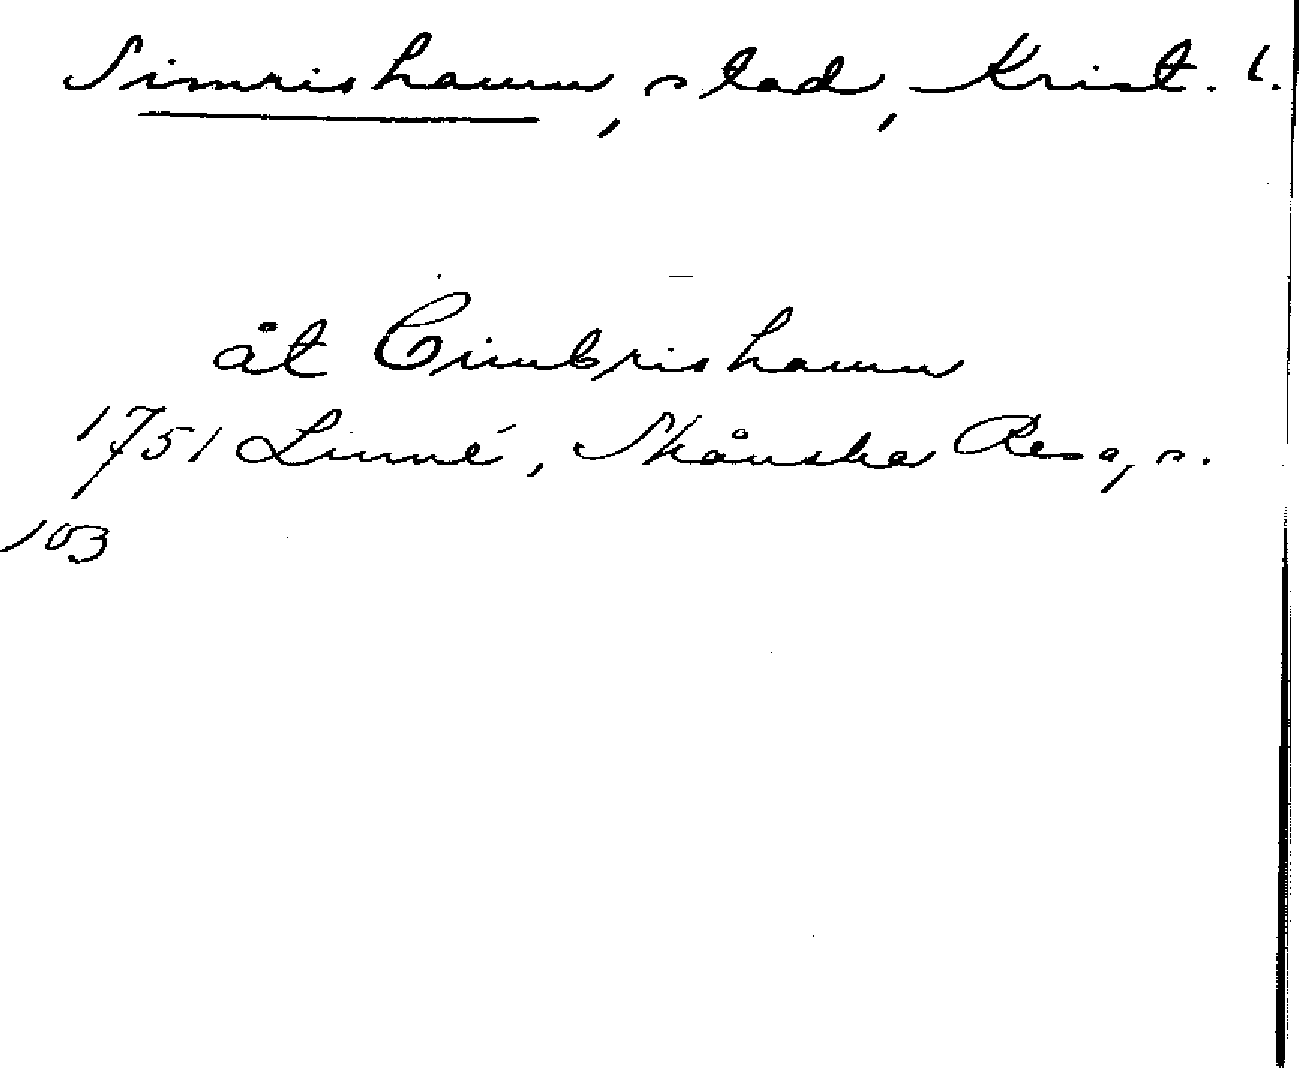 Simrishamn, stad, Krist. l.
åt Cimbrishamn
1751 Linné, Skånska Resa, s.
103